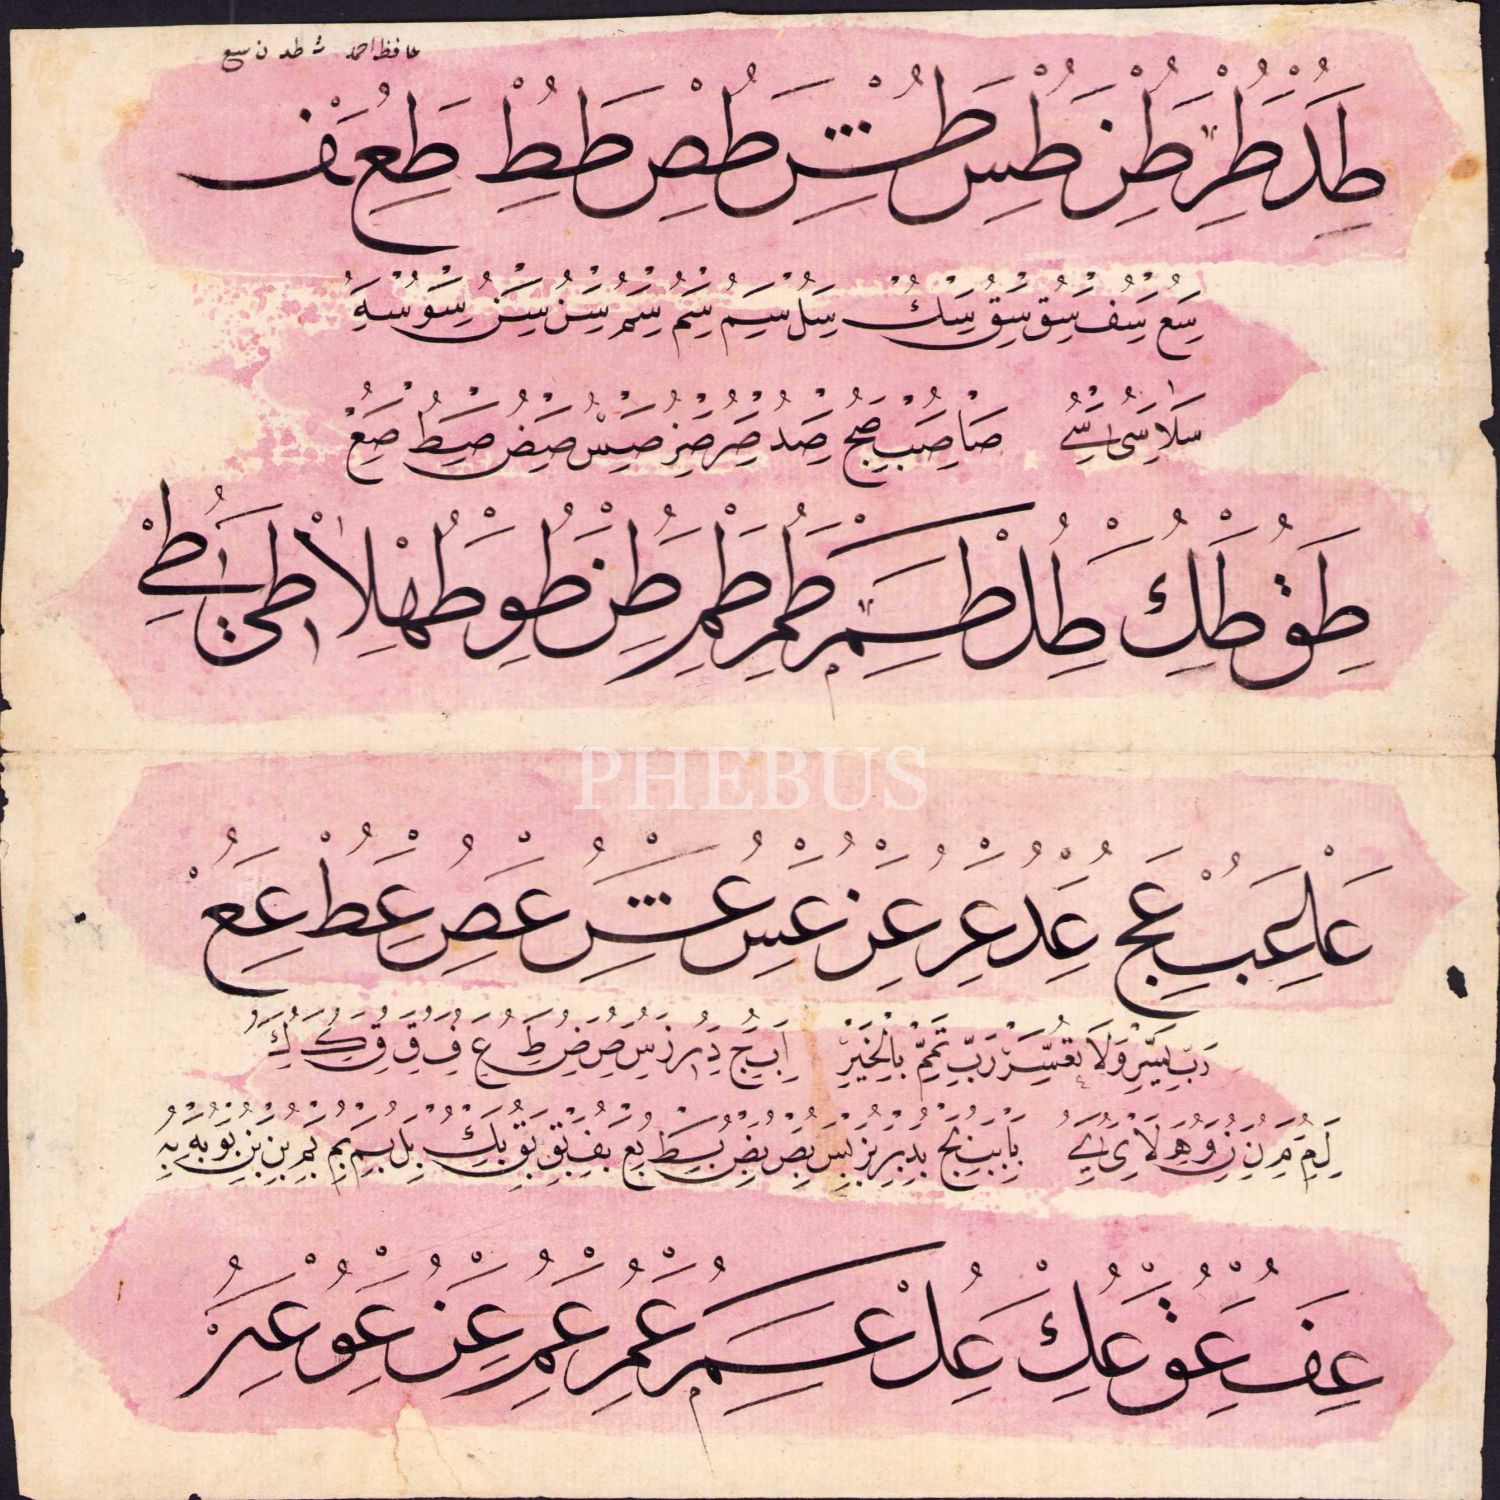 حافظ احمد
طد طر طز طس طش طص طط طع طف
سع سف سق سق سك سل سم سم سم سن سن سو سه
سلا سى سے صا صب صج صد صر صز صس صض صط صع
طق طك طل طم طم طم طن طو طه طلا طى طے
PHEBUS
عا عب عج عد عر عز عس عش عص عط عع
رَبِّ يَسِّرْ وَلَا تُعَسِّرْ رَبِّ تَمِّمْ بِالْخَيْرِ ا ب ج د ر ز س ص ض ط ع ف ق ق ك ك
ل م م ن ن و ه لا ى ے با بب بج بد بر بز بس بص بض بط بع بف بق بق بك بل بم بم بم بن بن بو به به
عف عق عك عل عم عم عم عن عو عر